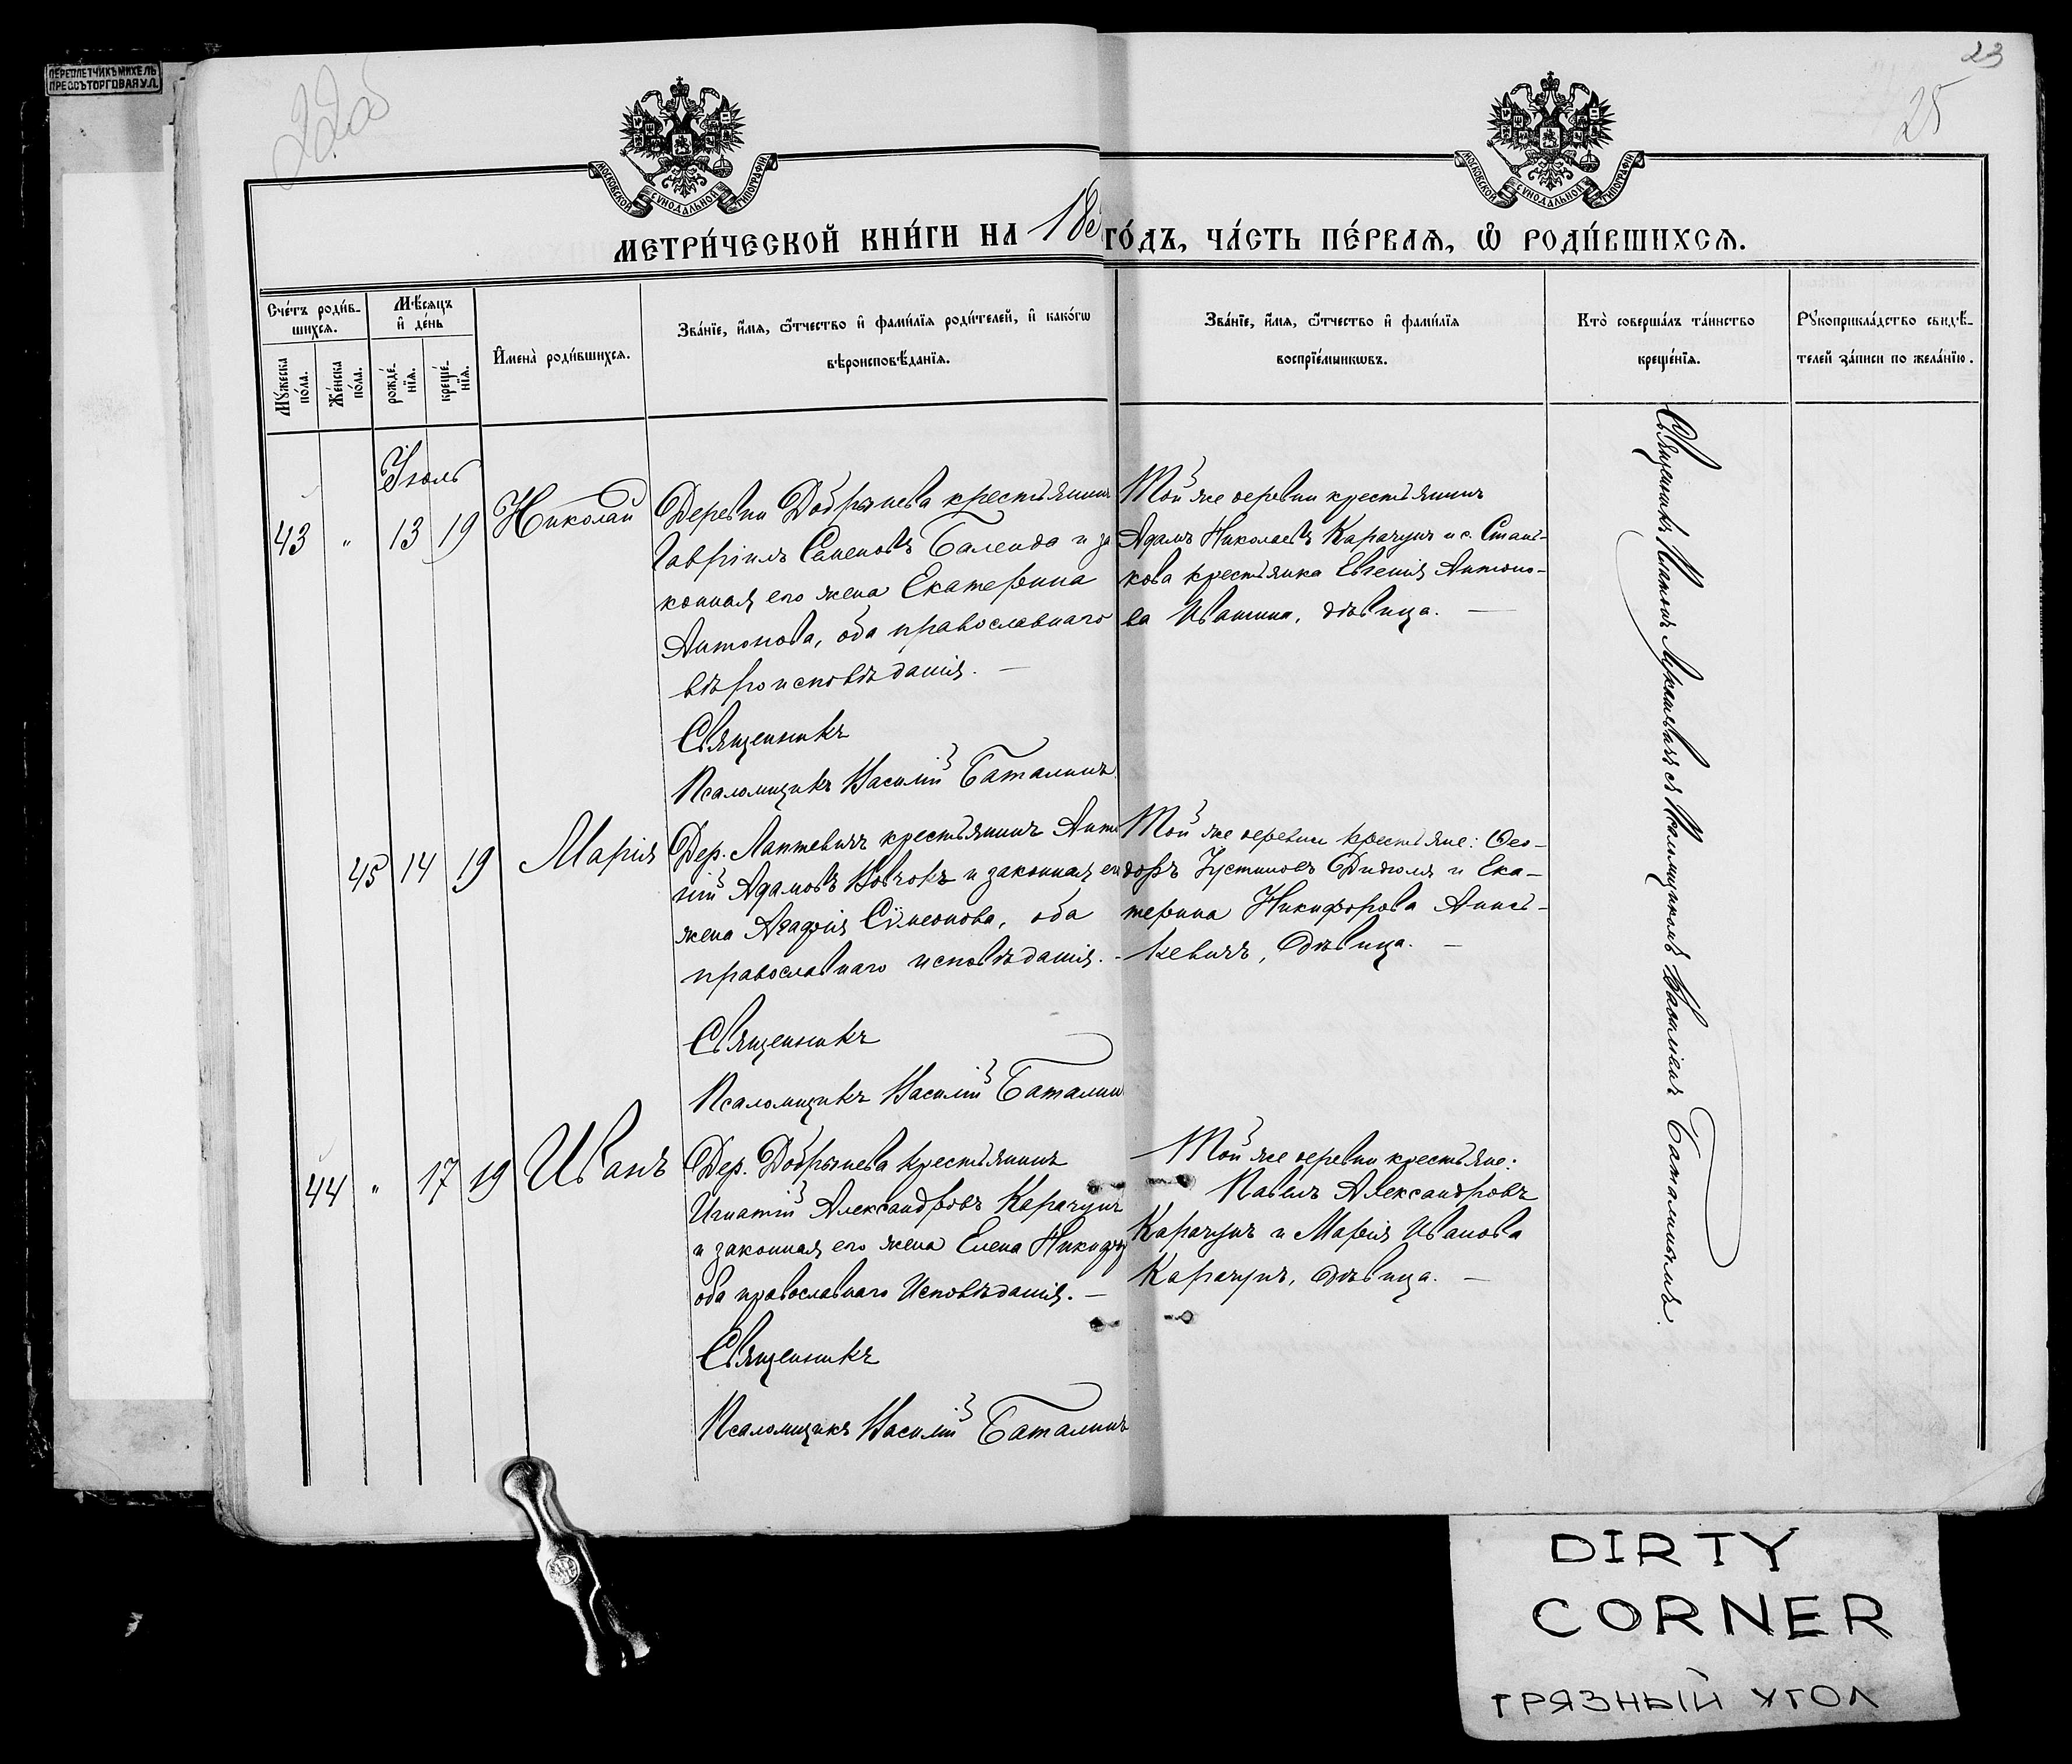 ПЕРЕПЛЕТЧИКЪ МИХЕЛЬ
ПРЕОБ. ТОРГОВАЯ УЛ.
22об
23
25
МОСКОВСКОЙ СѴНОДАЛЬНОЙ ТИПОГРАФІИ
МОСКОВСКОЙ СѴНОДАЛЬНОЙ ТИПОГРАФІИ
МЕТРИ́ЧЕСКОЙ КНИ́ГИ НА 18
ГО́ДЪ, ЧА́СТЬ ПЕ́РВАЯ, Ѡ҆ РОДИ́ВШИХСЯ.
Сче́тъ роди́в-
шихся.
Мꙋ́жеска по́ла.
Же́нска по́ла.
Мѣ́сяцъ
и҆ де́нь
рожде́-
нїя.
креще́-
нїя.
И҆мена̀ роди́вшихся.
Зва́нїе, и҆́мя, ѻ҆́тчество и҆ фамилїя роди́телей, и҆ како́гѡ
вѣроисповѣ́данїя.
Зва́нїе, и҆́мя, ѻ҆́тчество и҆ фами́лїя
воспрїе́мникѡвъ.
Кто̀ соверша́лъ та́инство
креще́нїя.
Рꙋкоприкла́дство свидѣ́-
телей за́писи по жела́нїю.
Іюль
43 " 13 19 Николай
Деревни Добрынева крестьянинъ
Гавріилъ Семеновъ Баленда и за
конная его жена Екатерина
Антонова, оба православнаго
вѣроисповѣданія. —
Священникъ
Псаломщикъ Василій Баталинъ
Той же деревни крестьянинъ
Адамъ Николаевъ Карачунъ и с. Стань-
кова крестьянка Евгенія Антоно-
ва Ивашина, дѣвица. —
45 14 19 Марія
Дер. Лаптевичъ крестьянинъ Анто
ній Адамовъ Вовчокъ и законная его
жена Агафія Сѵмеонова, оба
православнаго исповѣданія. -
Священникъ
Псаломщикъ Василій Баталин
Той же деревни крестьяне: Ѳео-
доръ Іустиновъ Дидюля и Ека-
терина Никифорова Анись-
кевичъ, дѣвица. —
44 " 17 19 Иванъ
Дер. Добрынева крестьянинъ
Игнатій Александровъ Карачунъ
и законная его жена Елена Никифор
оба православнаго Исповѣданія. —
Священникъ
Псаломщикъ Василій Баталинъ
Той же деревни крестьяне:
Павелъ Александровъ
Карачунъ и Марія Иванова
Карачунъ, дѣвица. —
Священникъ Платонъ съ Псаломщикомъ Василіемъ Баталинымъ.
DIRTY
CORNER
ГРЯЗНЫЙ УГОЛ